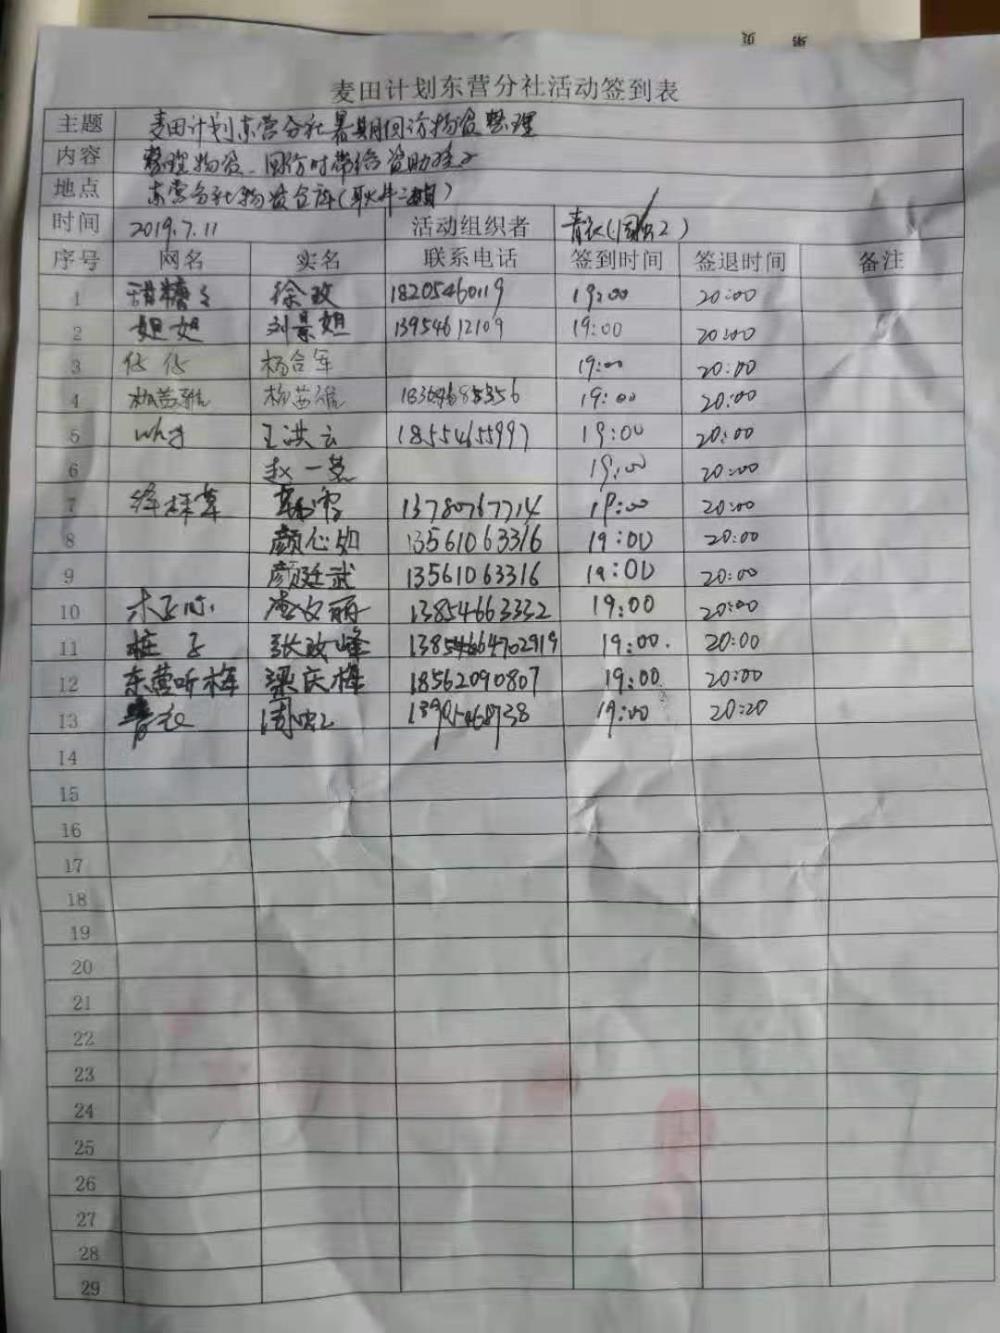 第 页
麦田计划东营分社活动签到表
主题 麦田计划东营分社暑期回访物资整理
内容 整理物资、回访时带给资助孩子
地点 东营分社物资仓库
时间 2019.7.11 活动组织者 青衣
序号 网名 实名 联系电话 签到时间 签退时间 备注
1 徐政 18205460119 19:00 20:00
2 妲妲 刘景妲 13954612109 19:00 20:00
3 杨合军 19:00 20:00
4 19:00 20:00
5 why 王洪云 18554655997 19:00 20:00
6 赵一 19:00 20:00
7 13780767714 19:00 20:00
8 颜心如 13561063316 19:00 20:00
9 颜廷武 13561063316 19:00 20:00
10 木子心 李文丽 13854663332 19:00 20:00
11 桩子 张政峰 19:00. 20:00
12 东营听梅 梁庆梅 18562090807 19:00 20:00
13 青衣 19:00 20:20
14
15
16
17
18
19
20
21
22
23
24
25
26
27
28
29